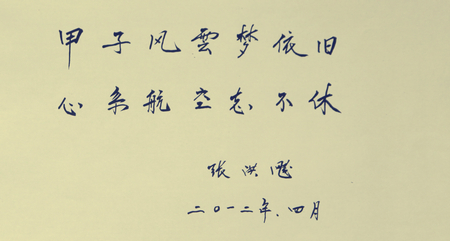 甲子风雲梦依旧
心系航空志不休
张洪飚
二〇一二年.四月